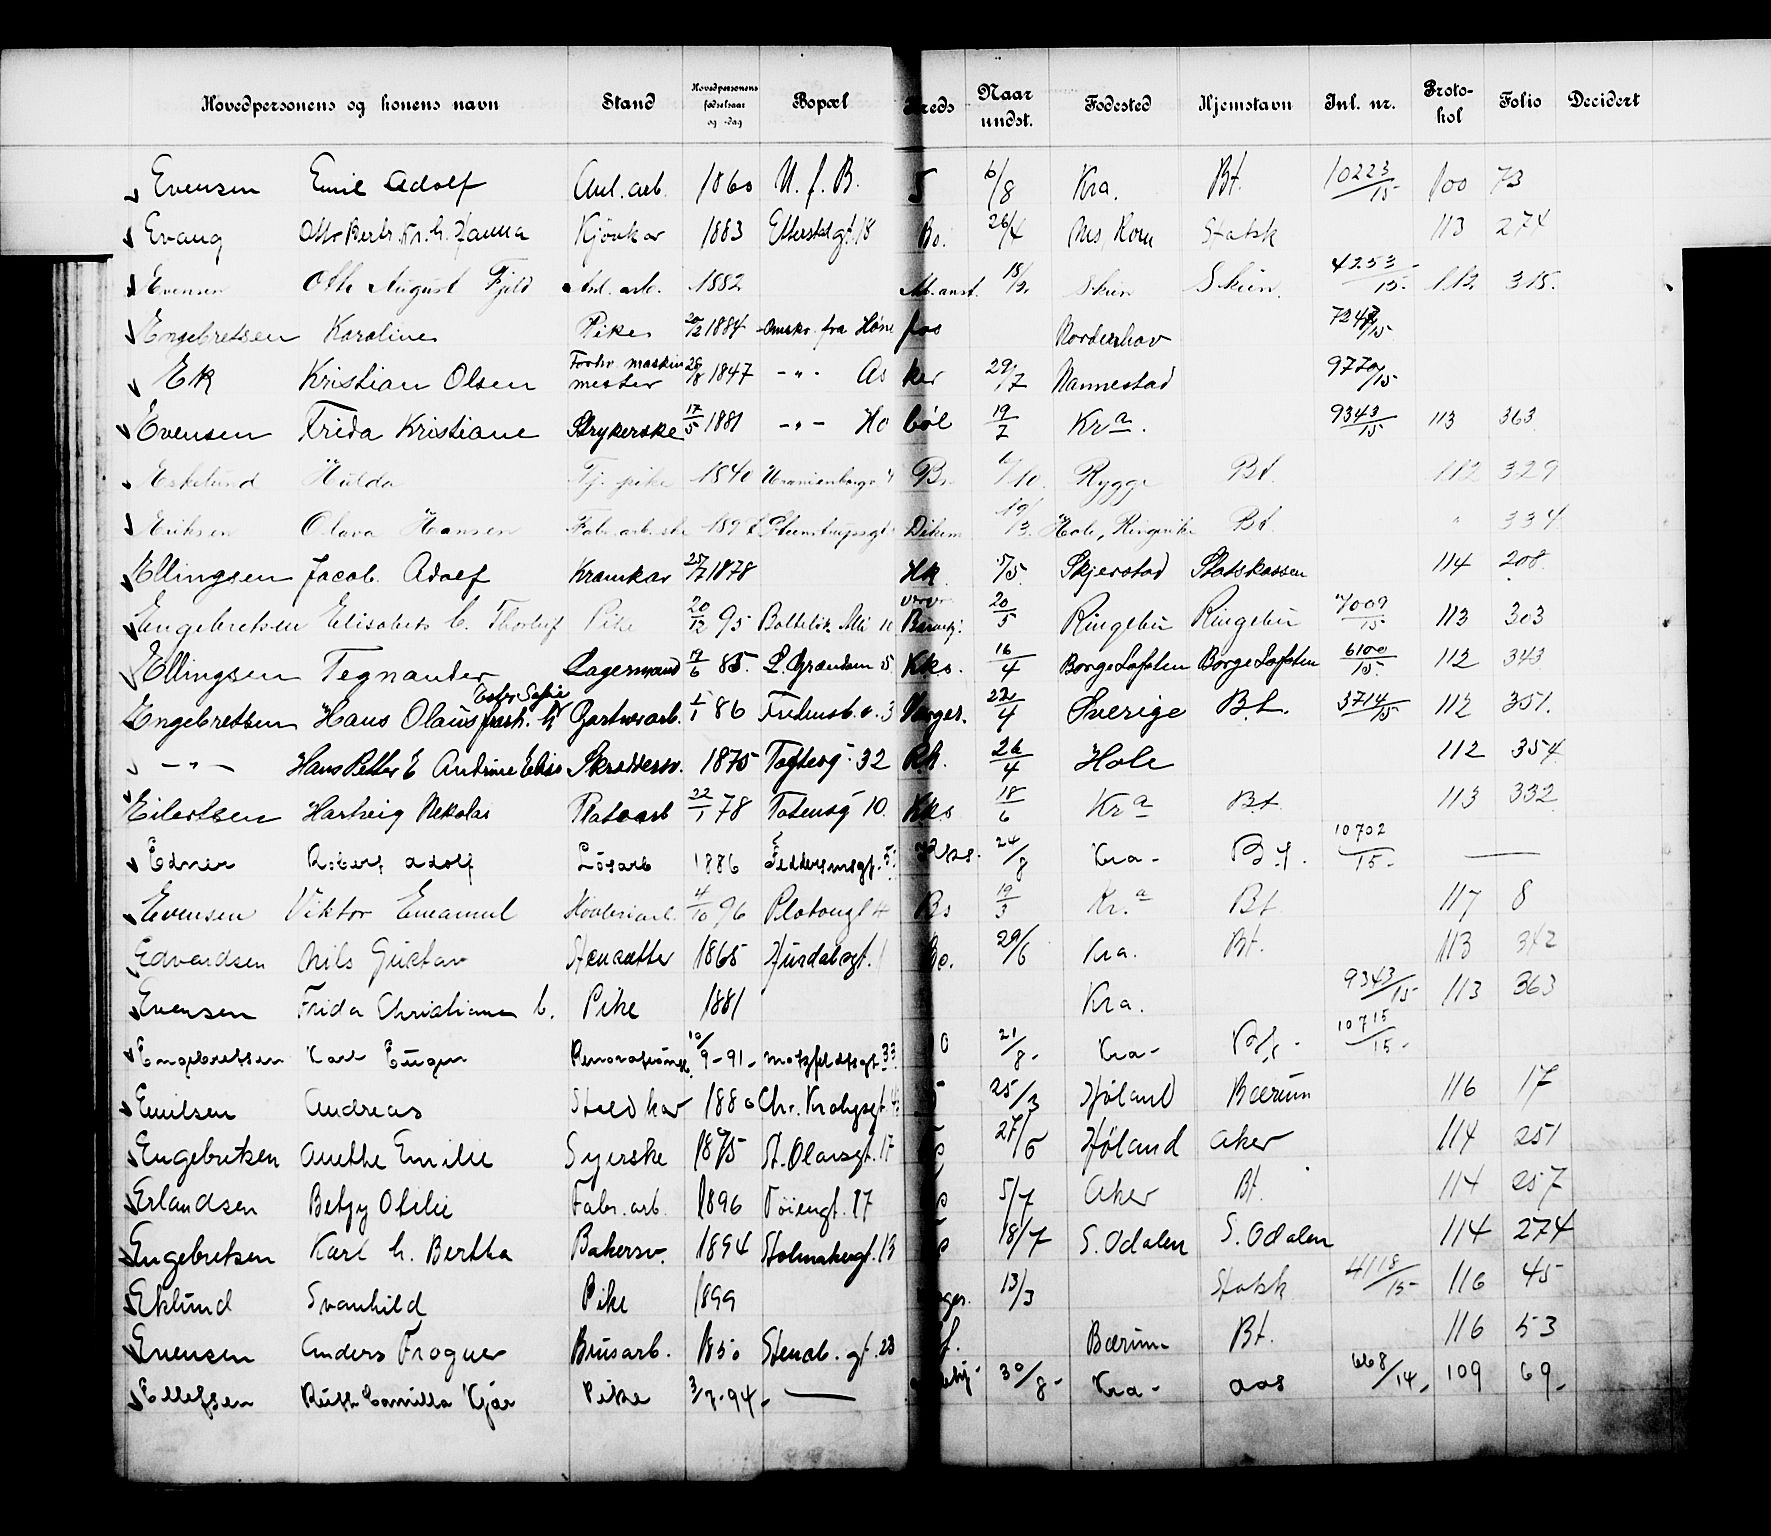 Hovedpersonens og konens navn Stand Hovedpersonens fødselsaar og -dag Bopæl Kreds Naar undst. Fødested Hjemstavn Inl. nr. Protokol Folio Decidert
Evensen Emil Adolf Anl. arb. 1860 U. f. B. 5 6/8 Kra. Bt. 10223/15 100 73
Evang Kjøvkar 1883 18 Bo. 26/4 Statsk 113 274
Evensen Otto August Fjeld Anl. arb. 1882 18/3 Skien Skien 4253/15 112 315.
Engebretsen Karoline Pike 20/2 1884 Omskr. fra Hønefos Norderhov 15
Ek Kristian Olsen Forhv. maskinmester 26/8 1847 -"- Asker 29/7 Nannestad 9770/15
Evensen Frida Kristiane Strykerske 17/5 1881 -"- Hobøl 19/7 Kra. 9343/15 113 363
Eskelund Hulda Tj. pike 1840 Rygge Bt. 112 329
Eriksen Olava Hansen Fabr. arb.ske Dikem. 19/3 Hole, Ringerike Bt. " 334
Ellingsen Jacob Adolf Kranikar 25/7 1878 Hk. 5/5 Skjerstad Statskassen 114 208
Engebretsen Elisabeth C. Pike 20/12 95 20/5 Ringebu Ringebu 7009/15 113 303
Ellingsen Tegnander Lagermand 17/6 85. L. Grændsen 5 Kks. 16/4 Borge Lofoten Borge Lofoten 6100/15 112 343
Engebretsen Hans Olaus 1/1 86 3 22/4 Sverige Bt. 3714/15 112 351.
- " - Hans Petter E Andrine Elise Skreddersv. 1875 32 Rh. 26/4 Hole 112 354
Eilertsen Hartvig Nikolai 22/1 78 Totensg 10. Kks 18/6 Kra Bt. 113 332
Edner Robert Adolf Løsarb 1886 Feddersensgt. 5 24/8 Kra - Bt. 10702/15 -
Evensen Viktor Emanuel 4/10 96 Platougt 4 Bs 19/3 Kra Bt 117 8
Edvardsen Nils Gustav Stensætter 1865 29/6 Kra. Bt. 113 342
Evensen Frida Christiane C. Pike 1881 Kra. 9343/15 113 363
Engebretsen Karl Eugen 10/9-91- Motzfeldtsgt. 33 21/8- Kra- Bt. 10715/15-
Emilsen Andreas Staldkar 1880 Chr. Krohgsgt. 25/3 Høland Bærum 116 17
Engebretsen Anethe Emilie Syerske 1875 St. Olavsgt. 17 27/5 Høland Aker 114 251
Erlandsen Betzy Otilie Fabr. arb. 1896 Tøiengt. 17 5/7 Aker Bt. 114 257
Engebretsen Karl h. Bertha Bakersv. 1894 Stolmakergt. 13 18/7 S. Odalen S. Odalen 114 274
Eklund Svanhild Pike 1899 13/3 Statsk 4118/15 116 45
Evensen Anders Frogner Brusarb. 1850 Stenab. gt. 23 Bærum Bt. 116 53
Ellefsen Ruth Camilla Kjær Pike 3/7-94- - 30/8- Kra- Aas 668/14- 109 69-